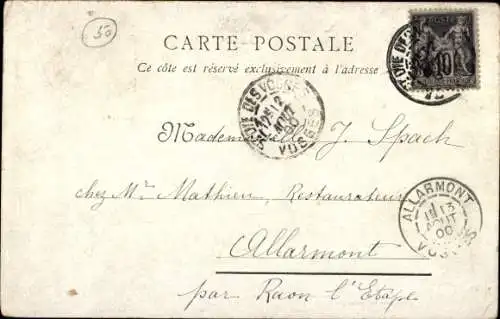 50
CARTE POSTALE
Ce côté est réservé exclusivement à l'adresse
POSTE
10
ST DIÉ DES VOSGES
12
AOUT
00
VOSGES
Mademoiselle J. Spach
chez Mr Mathieu, Restaurateur
ALLARMONT
13
AOUT
00
VOSGES
Allarmont
par Raon l'Etape